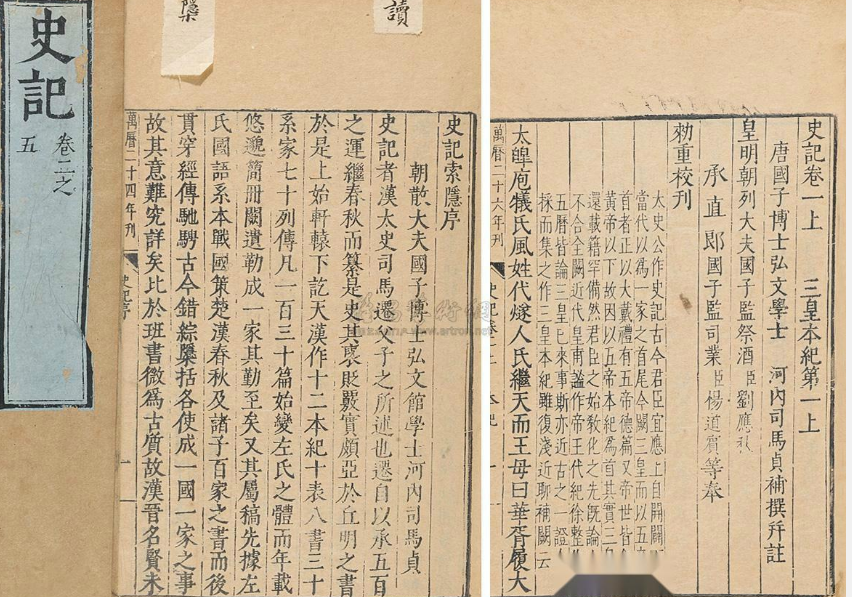 史記
卷二之
五
隱
讀
史記索隱序
朝散大夫國子博士弘文館學士河內司馬貞
史記者漢太史司馬遷父子之所述也遷自以承五百
之運繼春秋而纂是史其褒貶覈實頗亞於丘明之書
於是上始軒轅下訖天漢作十二本紀十表八書三十
系家七十列傳凡一百三十篇始變左氏之體而年載
悠邈簡冊闕遺勒成一家其勤至矣又其屬稿先據左
氏國語系本戰國策楚漢春秋及諸子百家之書而後
貫穿經傳馳騁古今錯綜檃括各使成一國一家之事
故其意難究詳矣比於班書微為古質故漢晉名賢未
萬曆二十四年刊
史記序
一
史記卷一上 三皇本紀第一上
唐國子博士弘文學士 河內司馬貞補撰幷註
皇明朝列大夫國子監祭酒臣劉應
承直郎國子監司業臣楊道賓等奉
勑重校刊
太史公作史記古今君臣宜應上自開闢
當代以為一家之首尾今闕三皇而以五
首者正以大戴禮有五帝德篇又帝世皆
黃帝以下故因以五帝本紀為首其實三
還載籍罕備然君臣之始敎化之先旣論
不合全闕近代皇甫謐作帝王代紀徐整
五曆皆論三皇已來事斯亦近古之一證
採而集之作三皇本紀雖復淺近聊補闕云
太皥庖犧氏風姓代燧人氏繼天而王母曰華胥履大
萬曆二十六年刊
史記卷一上 本紀
一